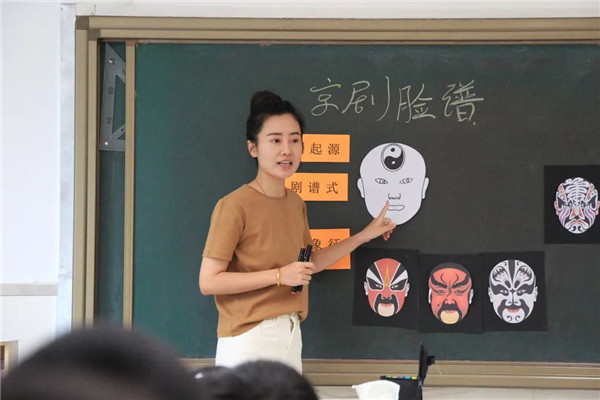 京剧脸谱
起源
剧谱式
象征